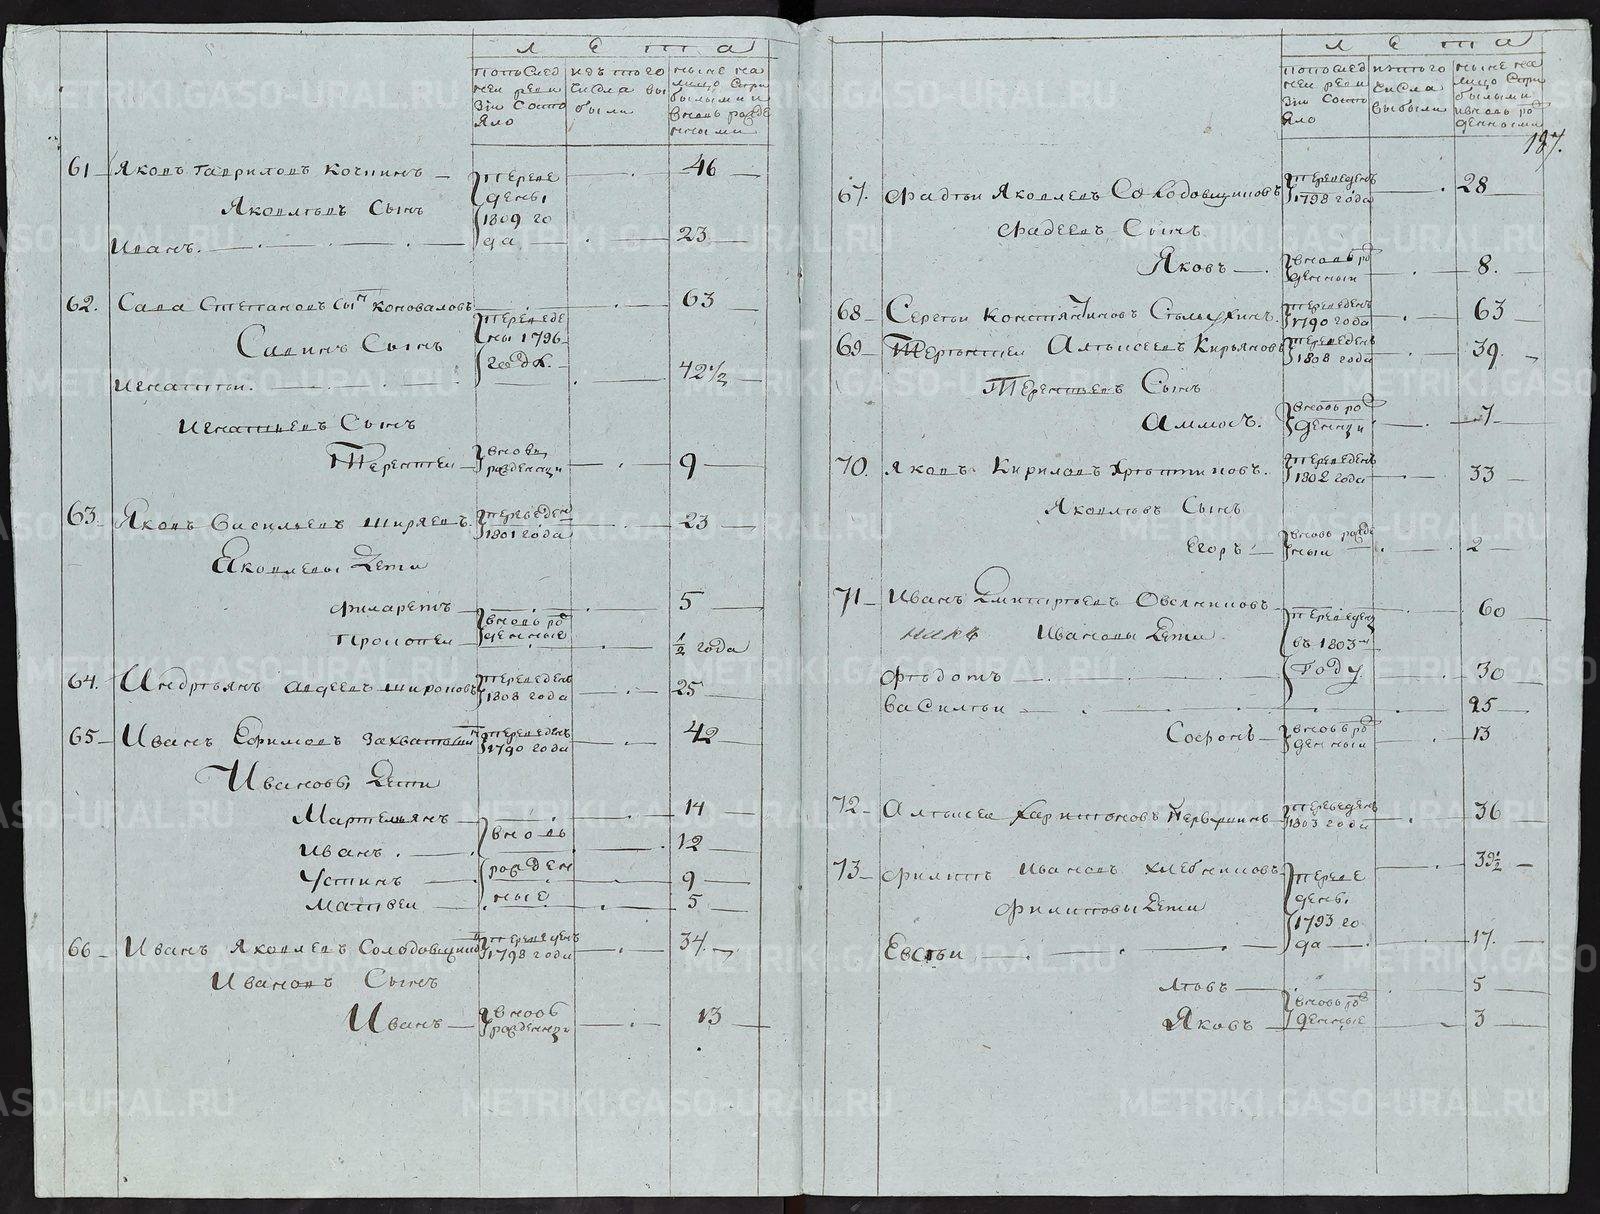 Лета
попослед ней реви зіи состо яло
изъ того числа вы были
ныне на лицо съ при былыми и вновь рожде нными
61 Яковъ Гавриловъ Кочнинъ
переве дены 1809 го да
46
Яковлевъ Сынъ
Иванъ
23
62. Сава Степановъ сынъ Коноваловъ
63
переведе ны 1796 годж.
Савинъ Сынъ
Игнатеи.
42 1/2
Игнатьевъ Сынъ
Терентеи
вновь рожденци
9
63. Яковъ Василъевъ Ширяевъ.
переведен 1801 года
23
Яковлевы Дети
Филаретъ
5
Прокопеи
вновь ро денные
1/2 года
64. Индреянъ Авдеевъ Широковъ
переведенъ 1808 года
25
65 Иванъ Ефимовъ Захватошин
переведенъ 1790 года
42
Ивановы Дети
Мартемьянъ
14
Иванъ.
вновь рожден ные
12
Устинъ
9
Матвеи
5
66 Иванъ Яковлевъ Солодовщиков
переведенъ 1798 года
34.
Ивановъ Сынъ
Иванъ
вновь рожденци
13
Лета
попослед ней реви зіи состо яло
изтого числа выбыли
ныне на лицо съ при былыми ивновь ро денными
187.
67. Фадеи Яковлевъ Солодовщиковъ
переведенъ 1798 года
28
Фадеевъ Сынъ
Яковъ
вновь ро денныи
8.
68 Сергеи Констянтиновъ
переведенъ 1790 года
63
69 Терентеи Алексеевъ Кирьяновъ
переведенъ 1808 года
39.
Терентьевъ Сынъ
Аммосъ.
вновь ро денци
7
70. Яковъ Кириловъ
переведенъ 1802 года
33
Яковлевъ Сынъ
Егоръ
вновь рожде ныи
2
71 Иванъ Дмитреевъ Овсяниковъ
60
Ивановы Дети
переведен въ 1803м году
Федотъ
30
Василеи
25
Софронъ
вновь ро денныи
13
72 Алексеи Харитоновъ Первушинъ
переведенъ 1803 года
36
73 Филипъ Ивановъ Хлебниковъ
переве дены 1793 го да
39 1/2
Филиповы Дети
Евсеи
17.
Левъ
5
Яковъ
вновь ро денные
3
METRIKI.GASO-URAL.RU